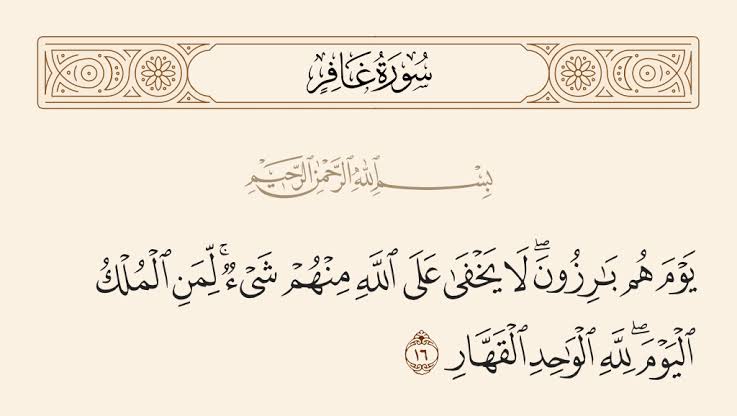 سُورَةُ غَافِرٍ
بِسْمِ ٱللَّهِ ٱلرَّحْمَٰنِ ٱلرَّحِيمِ
يَوْمَ هُم بَٰرِزُونَۖ لَا يَخْفَىٰ عَلَى ٱللَّهِ مِنْهُمْ شَىْءٌۚ لِّمَنِ ٱلْمُلْكُ
ٱلْيَوْمَۖ لِلَّهِ ٱلْوَٰحِدِ ٱلْقَهَّارِ ١٦